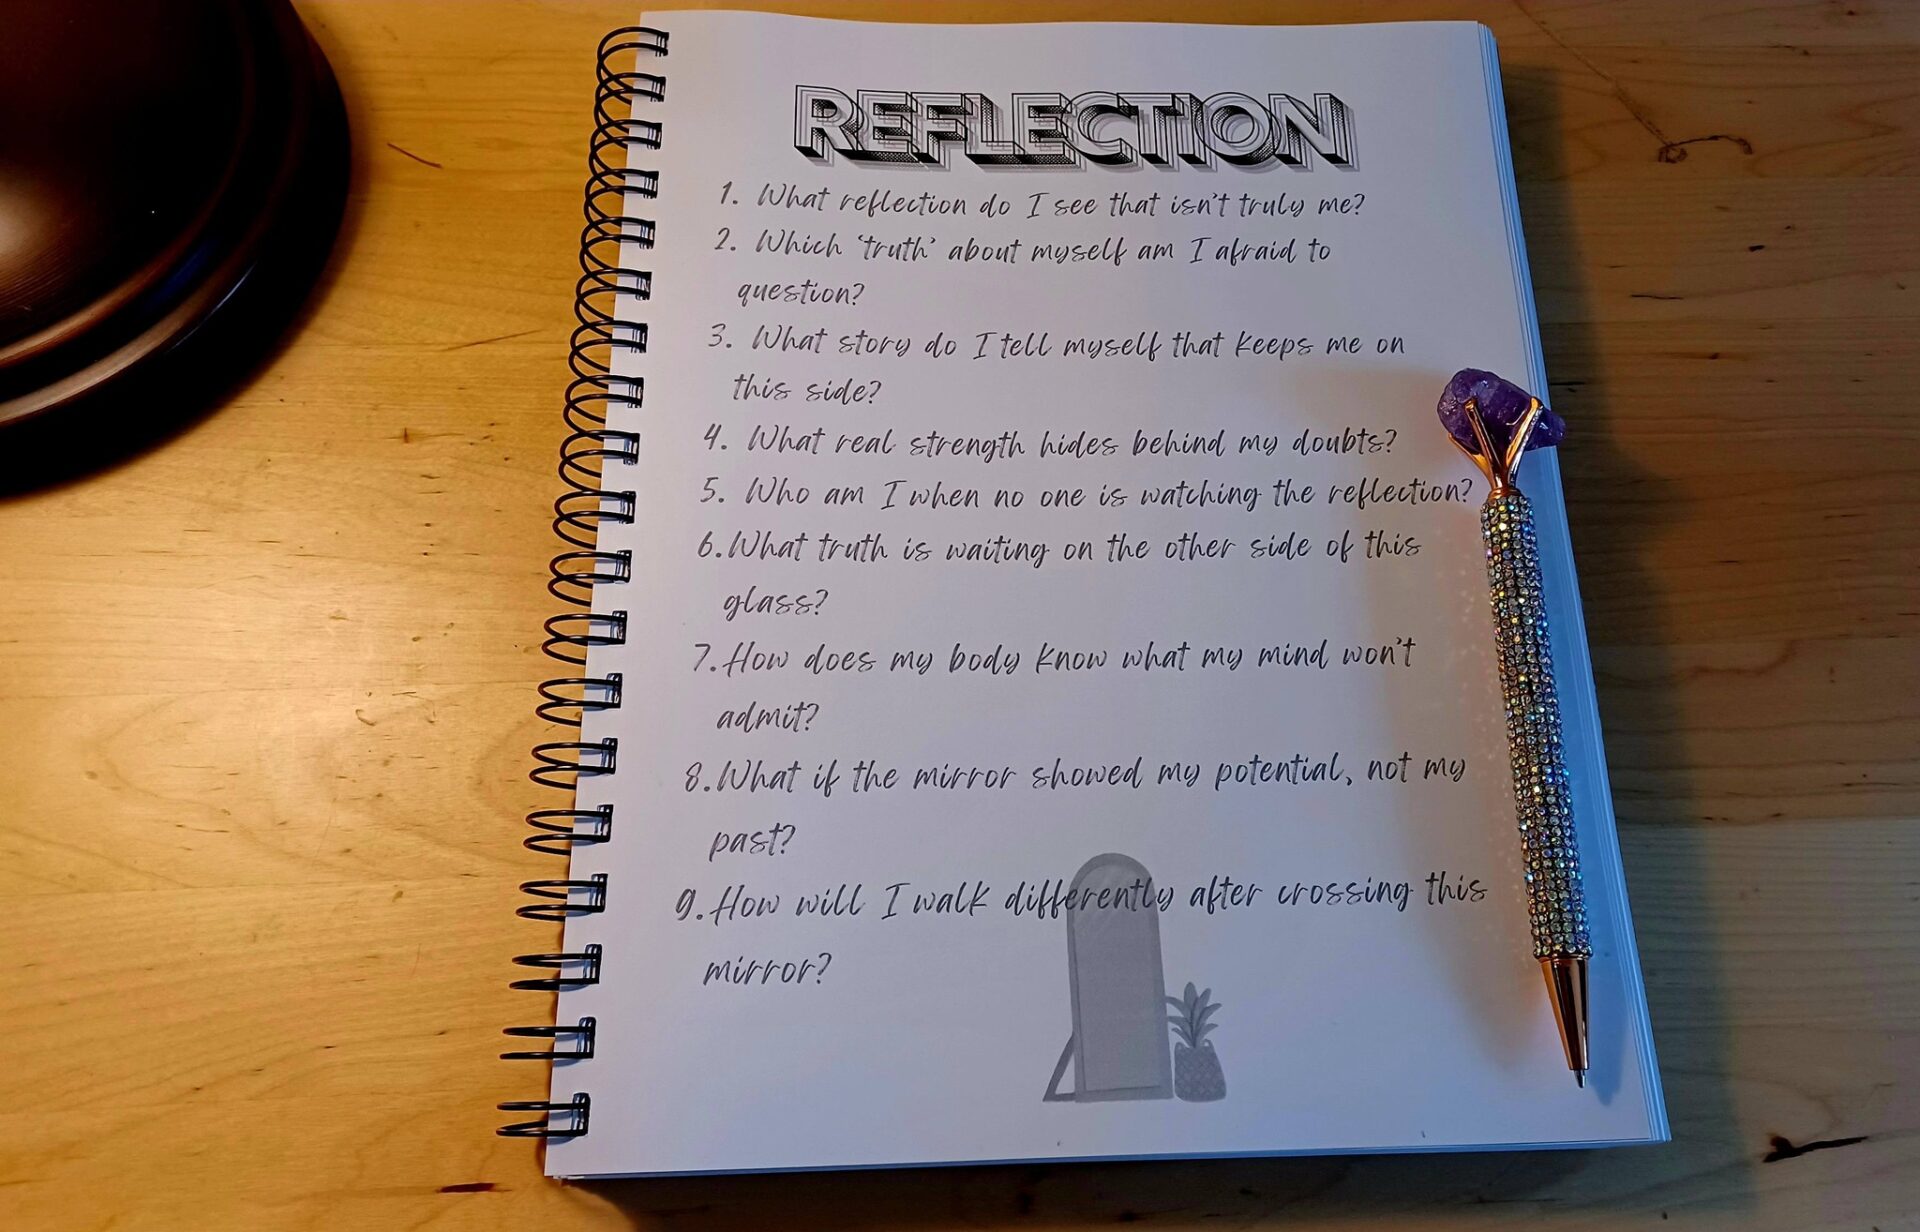 REFLECTION
1. What reflection do I see that isn't truly me?
2. Which 'truth' about myself am I afraid to
question?
3. What story do I tell myself that keeps me on
this side?
4. What real strength hides behind my doubts?
5. Who am I when no one is watching the reflection?
6. What truth is waiting on the other side of this
glass?
7. How does my body know what my mind won't
admit?
8. What if the mirror showed my potential, not my
past?
9. How will I walk differently after crossing this
mirror?